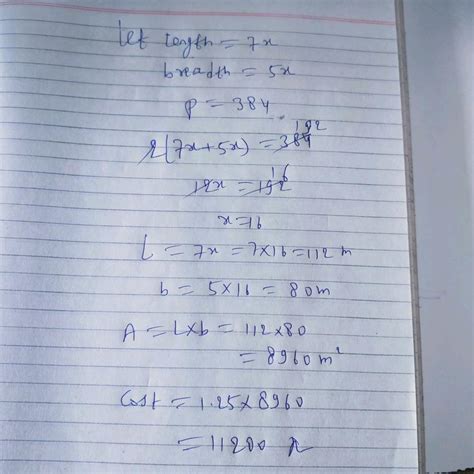 let length = 7x
breadth = 5x
P = 384
2(7x+5x) = 384 192
12x = 192 16
x = 16
L = 7x = 7×16 = 112 m
b = 5×16 = 80m
A = L×b = 112×80
= 8960 m²
Cost = 1.25×8960
= 11200